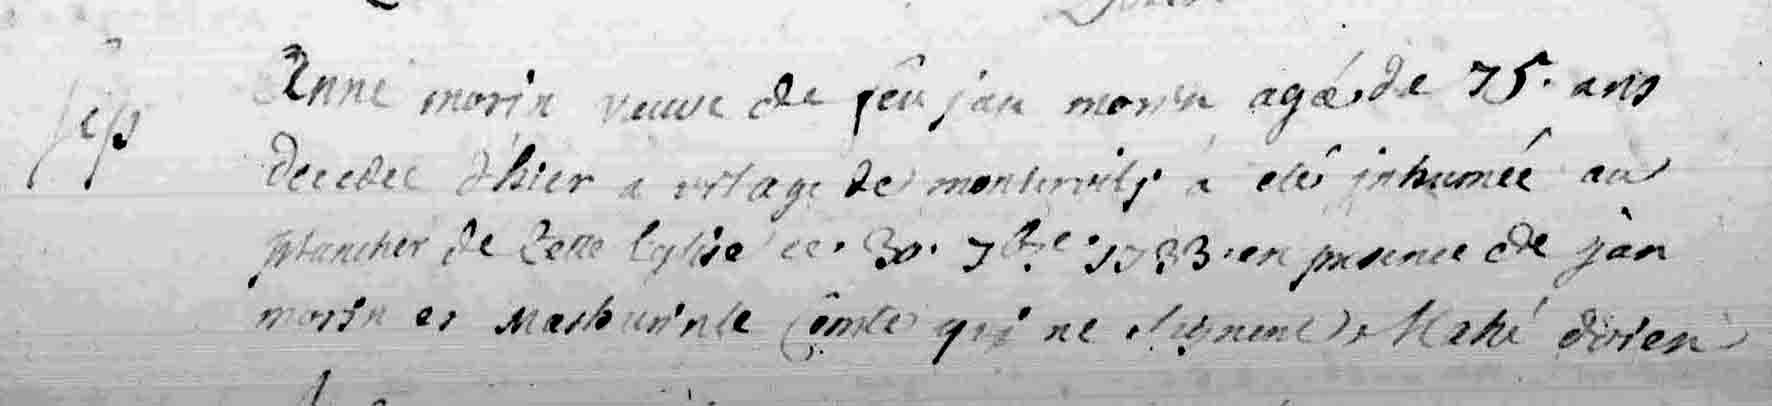 Anne morin veuve de feu jan morin agée de 75. ans
decedee d'hier a vilage de a eté inhumée au
plancher de Cette Eglise ce. 30. 7bre. 1733. en presence de jan
morin et Mathurinte qui ne signent Mahé doien